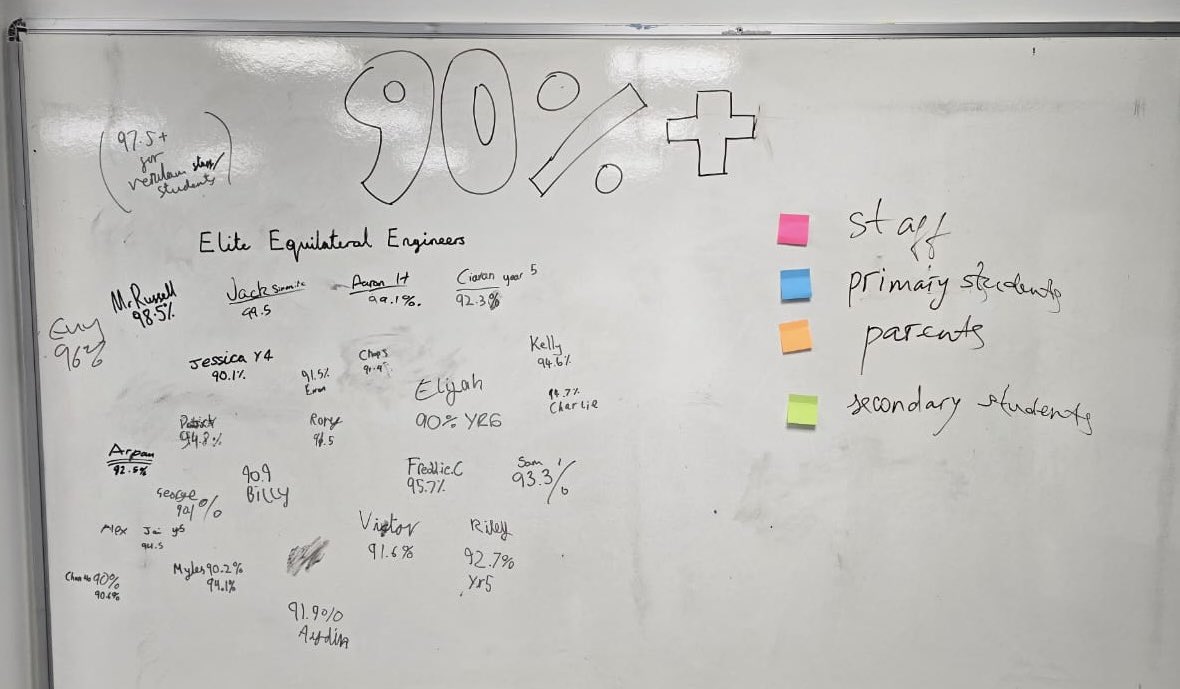 90%+
(97.5+
for
verulam staff/
students)
Elite Equilateral Engineers
Mr Russell
98.5%
Jack
99.5
Aaron H
99.1%.
Ciaran year 5
92.3%
Guy
96%
Jessica Y4
90.1%
91.5%
Chaps
Kelly
94.6%
Elijah
90% YR6
94.7%
Charlie
Patrick
94.8%
Rory
Arpan
92.5%
90.9
Billy
Freddie.C
95.7%
Sam
93.3%
George
Alex Jai y5
94.5
Victor
91.6%
Riley
92.7%
Yr5
Myles 90.2%
94.1%
90%
90.6%
91.9%
Aydin
staff
primary students
parents
secondary students